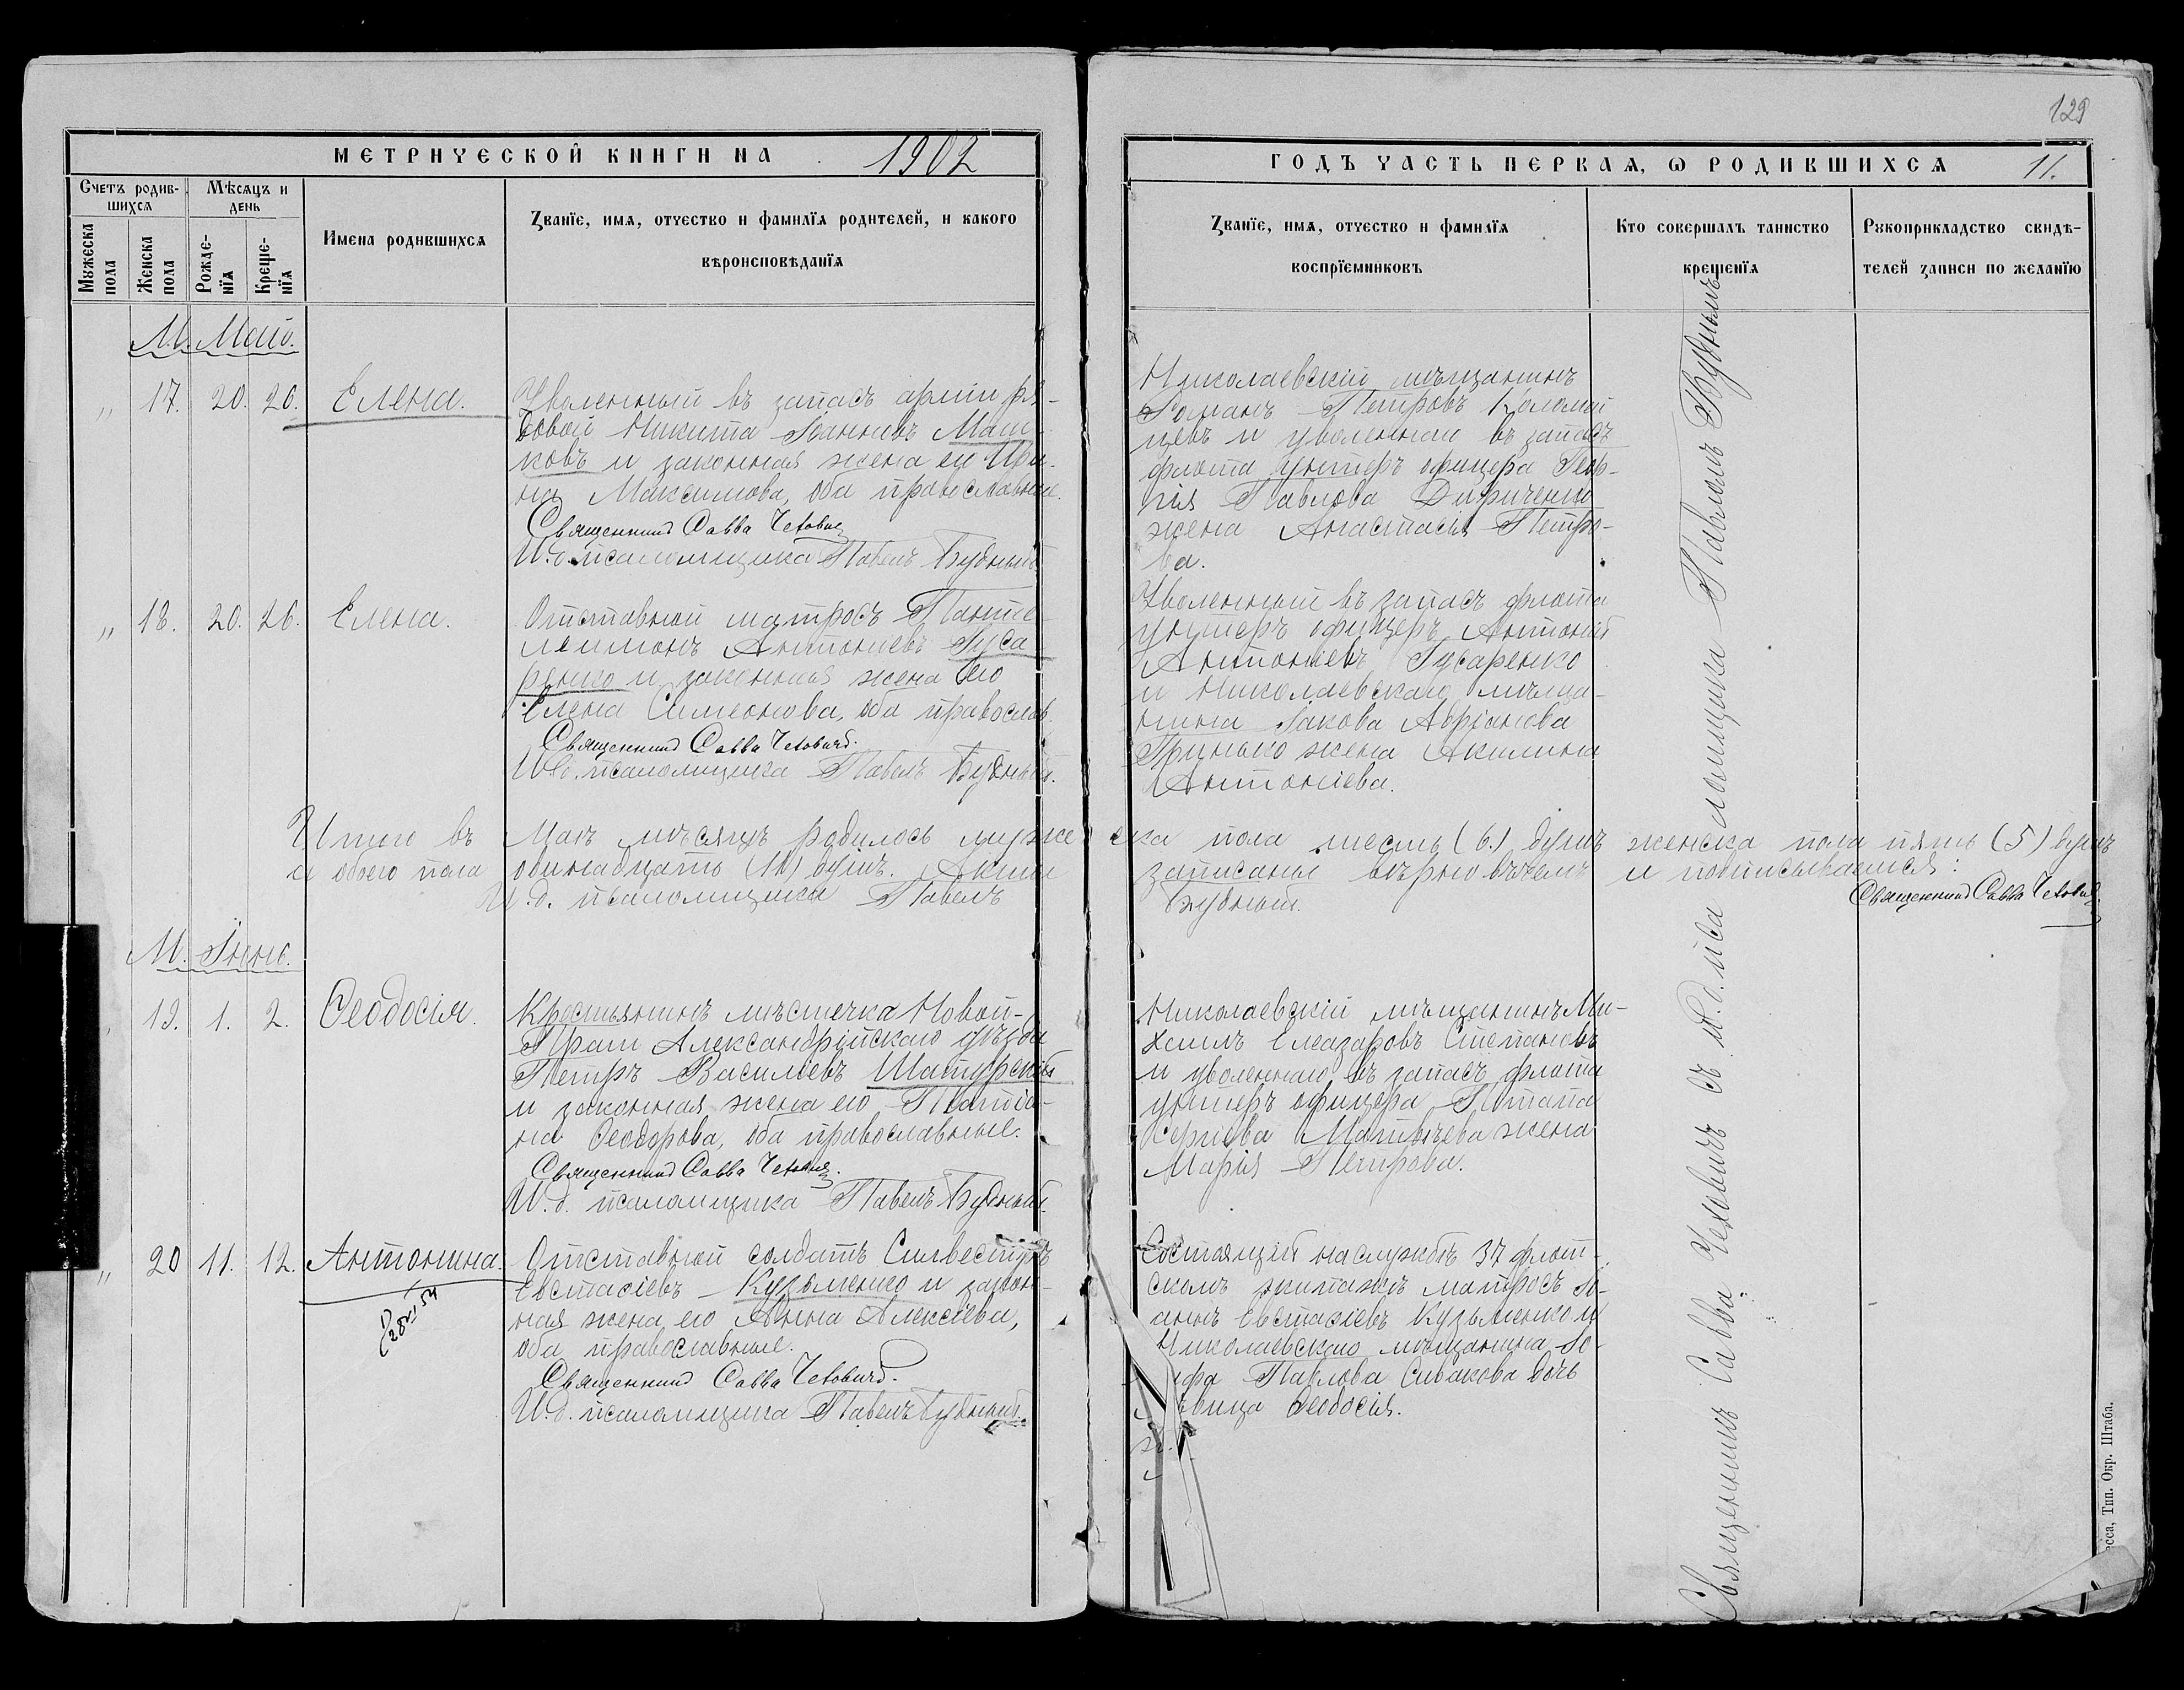 129
МЕТРИЧЕСКОЙ КНИГИ НА 1902
ГОДЪ ЧАСТЬ ПЕРВАЯ, Ѡ РОДИВШИХСЯ 11.
Счетъ родив-
шихся
Мужеска пола
Женска пола
Мѣсяцъ и
день
Рожде-
нїя
Креще-
нїя
Имена родившихся
Званїе, имя, отчество и фамилїя родителей, и какого
вѣроисповѣданїя
Званїе, имя, отчество и фамилїя
воспрїемниковъ
Кто совершалъ таинство
крещенїя
Рукоприкладство свидѣ-
телей записи по желанїю
М. Май.
„ 17. 20. 20. Елена.
Уволенный въ запасъ армiи ря-
довой Никита Iоанновъ Маш-
ковъ и законная жена его Ири-
на Максимова, оба православные.
Священникъ Савва Чеховичъ
И.д. псаломщика Павелъ Будный
Николаевскiй мѣщанинъ
Романъ Петровъ Коломай
цевъ и уволеннаго въ запасъ
флота унтеръ офицера Геор-
гiя Павлова Дириченко
жена Анастасiя Петро-
ва.
„ 18. 20. 26. Елена.
Отставной матросъ Панте-
леимонъ Антонiевъ Гуса
ренко и законная жена его
Елена Симеонова, оба православ.
Священникъ Савва Чеховичъ.
И.д. псаломщика Павелъ Будный.
Уволенный въ запасъ флота
унтеръ офицеръ Антонiй
Антонiевъ Гусаренко
и Николаевскаго мѣща-
нина Iакова Аврiанова
Гринько жена Акилина
Антонiева.
Итого въ Маѣ мѣсяцѣ родилось муже ска пола шесть (6.) душъ женска пола пять (5) душъ
и обоего пола одинадцать (11) душъ. Акты записаны вѣрно въ чемъ и подписываемся:
И.д. псаломщика Павелъ Будный.
Священникъ Савва Чеховичъ
М. Iюнь.
19. 1. 2. Ѳеодосiя.
Крестьянинъ мѣстечка Новой-
Праги Александрiйскаго уѣзда
Петръ Васильевъ Шатурскiй
и законная жена его Татiа-
на Ѳеодорова, оба православные.
Священникъ Савва Чеховичъ.
И.д. псаломщика Павелъ Будный.
Николаевскiй мѣщанинъ Ми-
хаилъ Елеазаровъ Степановъ
и уволеннаго въ запасъ флота
унтеръ офицера Потапа
Сергiева Матвѣева жена
Марiя Петрова.
„ 20 11. 12. Антонина.
Отставной солдатъ Сильвестръ
Евстафiевъ Кузьменко и закон-
ная жена его Анна Алексiева,
оба православные.
Священникъ Савва Чеховичъ.
И.д. псаломщика Павелъ Будный.
Состоящiй на службѣ 37 флот-
скомъ экипажѣ матросъ Iо-
аннъ Евстафiевъ Кузьменко и
Николаевскаго мѣщанина Iо-
ифа Павлова Сивакова дочь
ѣвица Ѳеодосiя.
Священникъ Савва Чеховичъ съ и.д. псаломщика Павломъ Буднымъ
есса, Тип. Окр. Штаба.